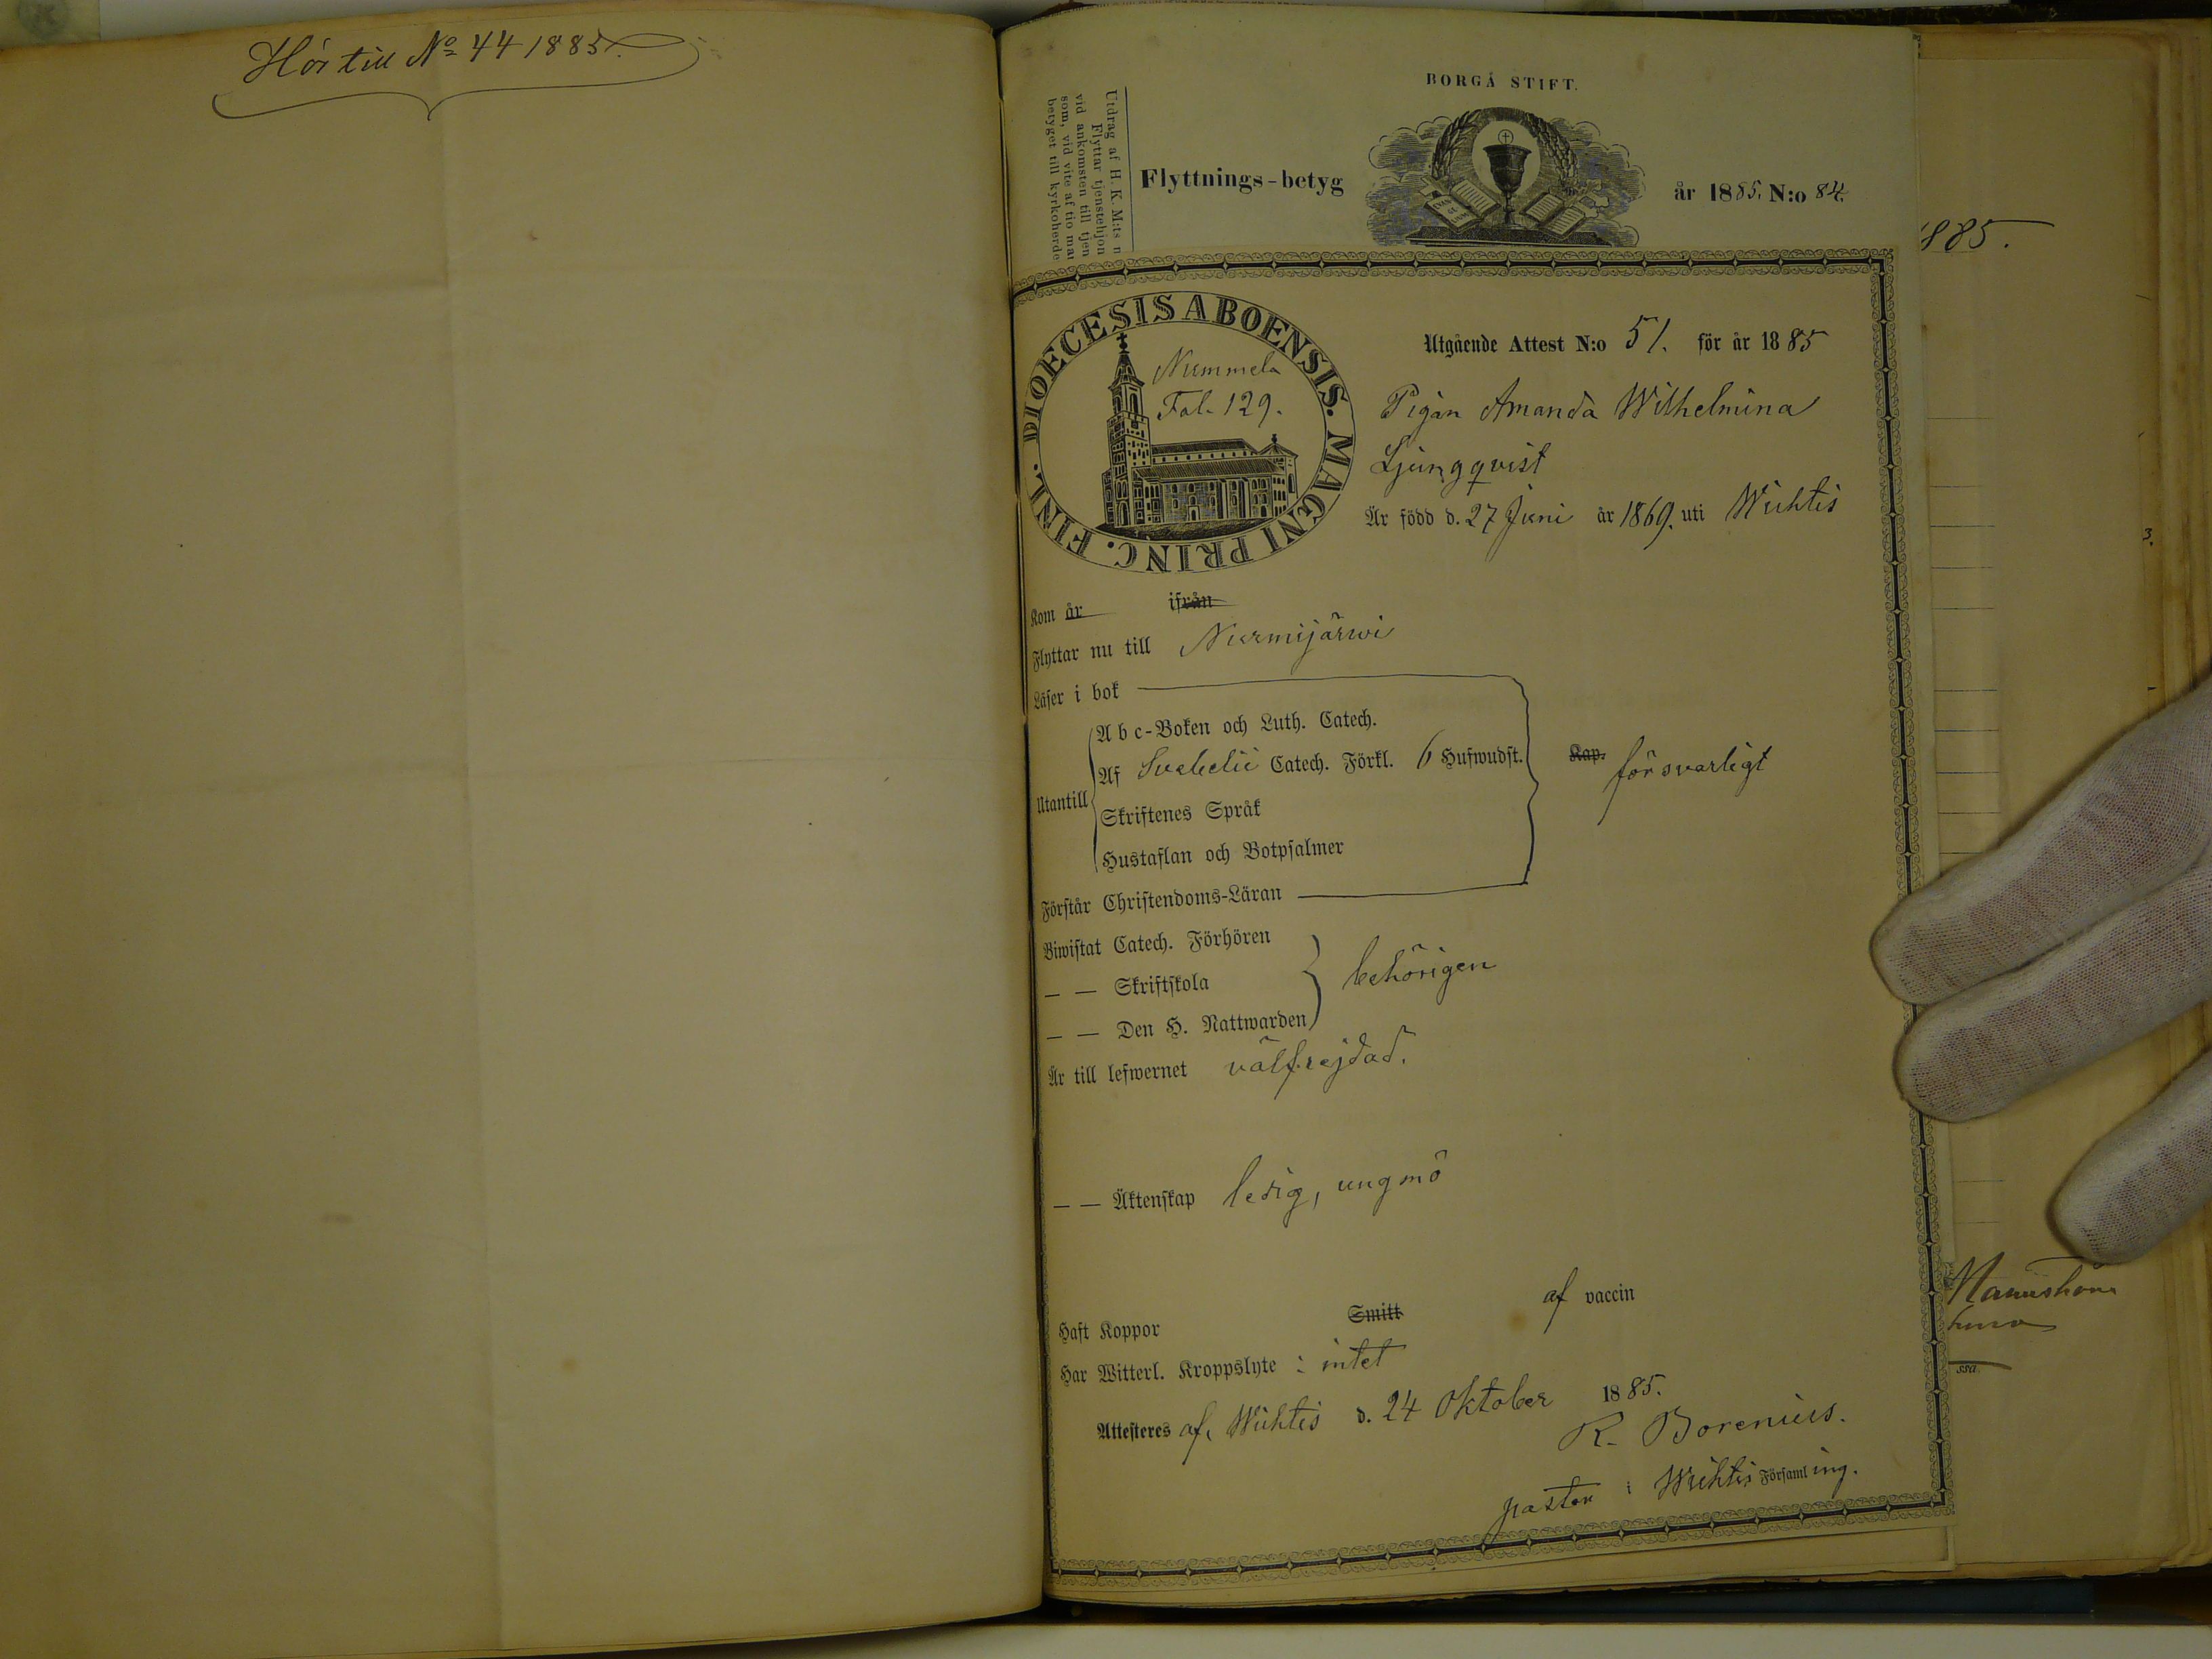 Hör till No 44 1885.
BORGÅ STIFT.
Utdrag af H. K. M:ts n
Flyttar tjenstehjon
vid ankomsten till tjen
som, vid vite af tio mar
betyget till kyrkoherde
Flyttnings-betyg
år 1885. N:o 84.
1885.
DIOECESIS ABOENSIS. MAGNI PRINC. FINL.
Nummela
Fol. 129.
Utgående Attest N:o 51. för år 1885
Pigan Amanda Wilhelmina
Ljungqvist
Är född d. 27 Juni år 1869. uti Wichtis
Kom år ifrån
Flyttar nu till Nurmijärwi
Läser i bok
Abc-Boken och Luth. Catech.
Utantill
Af Svebelii Catech. Förkl. 6 Hufwudst.
Kap. försvarligt
Skriftenes Språk
Hustaflan och Botpsalmer
Förstår Christendoms-Läran
Biwistat Catech. Förhören
— — Skriftskola
behörigen
— — Den H. Nattwarden
Är till lefwernet välfrejdad.
— — Äktenskap ledig, ungmö
Haft Koppor Smitt af vaccin
Har Witterl. Kroppslyte : intet
Attesteres af, Wichtis d. 24 Oktober 1885.
R. Borenius.
pastor i Wichtis Församling.
3.
ssa.